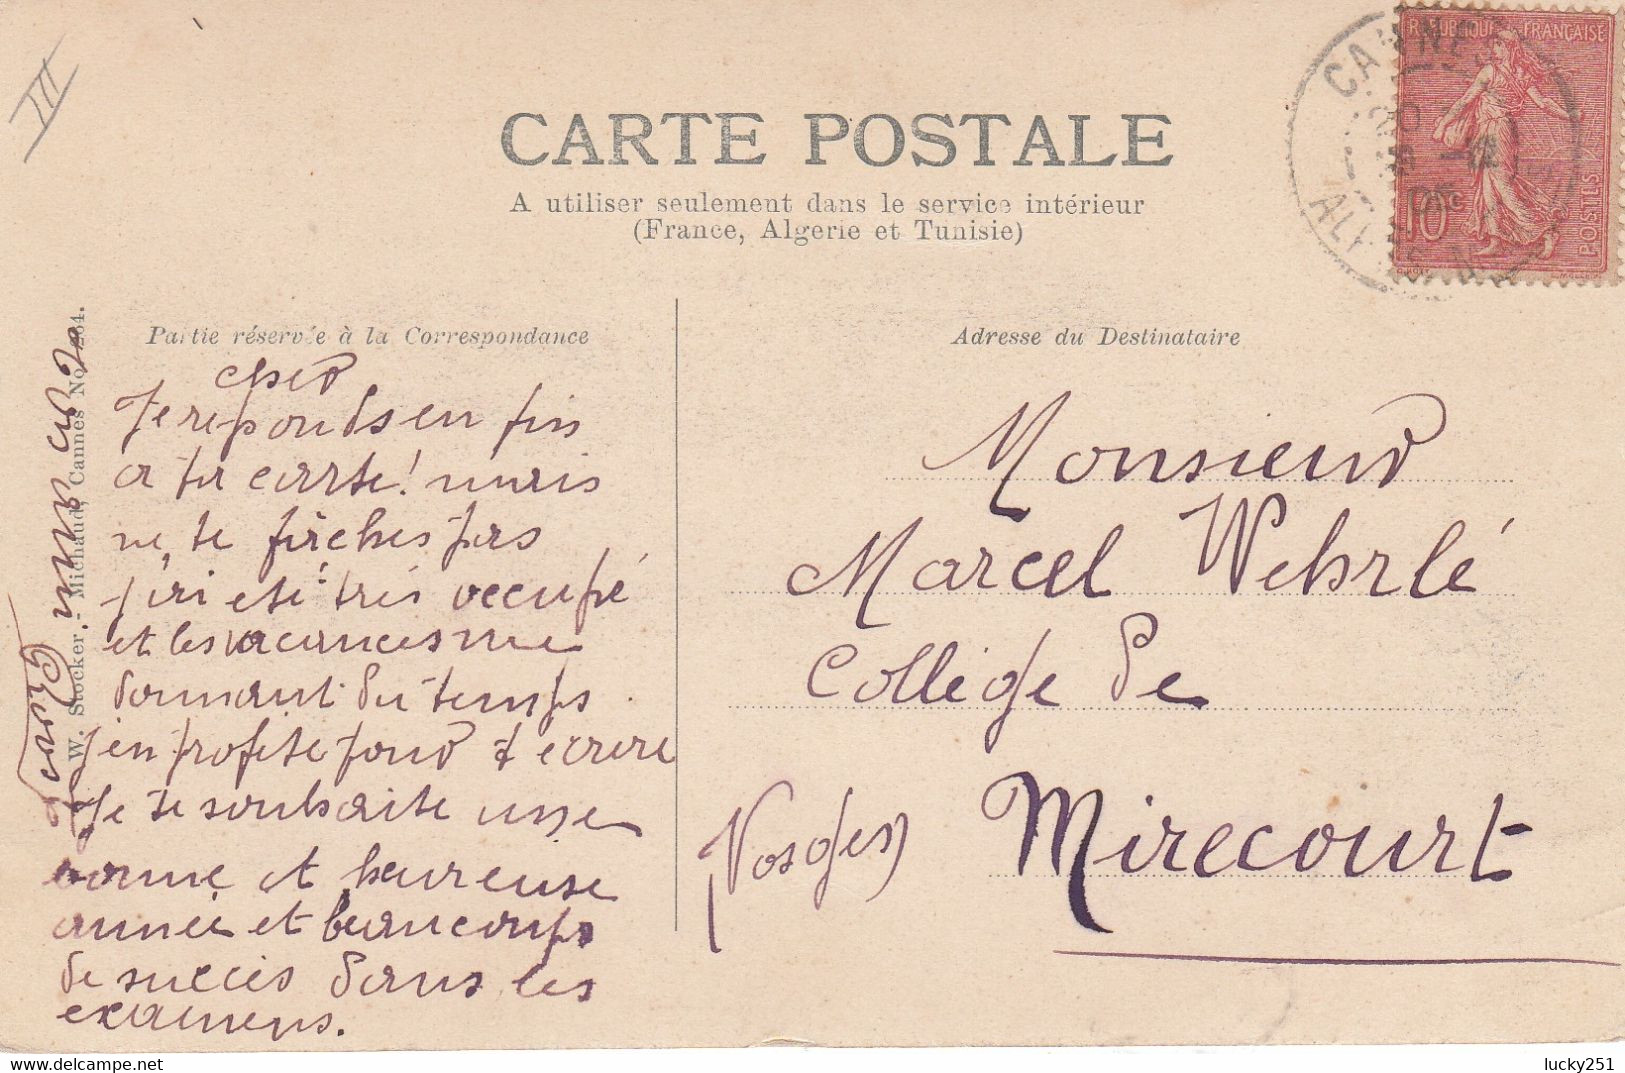 III
CARTE POSTALE
A utiliser seulement dans le service intérieur
(France, Algerie et Tunisie)
REPUBLIQUE FRANÇAISE
POSTES
10c
CANNES
Partie réservée à la Correspondance
cher
Je reponds en fin
a ta carte! mais
ne te fâches pas
j'ai eté très occupé
et les vacances me
donnant du temps
j'en profite pour t ecrire
Je te souhaite une
bonne et heureuse
année et beaucoup
de succès dans les
examens.
W. Stocker. - Michaud, Cannes No
Adresse du Destinataire
Monsieur
Marcel Wehrlé
Collège de
Mirecourt
(Vosges)
lucky251